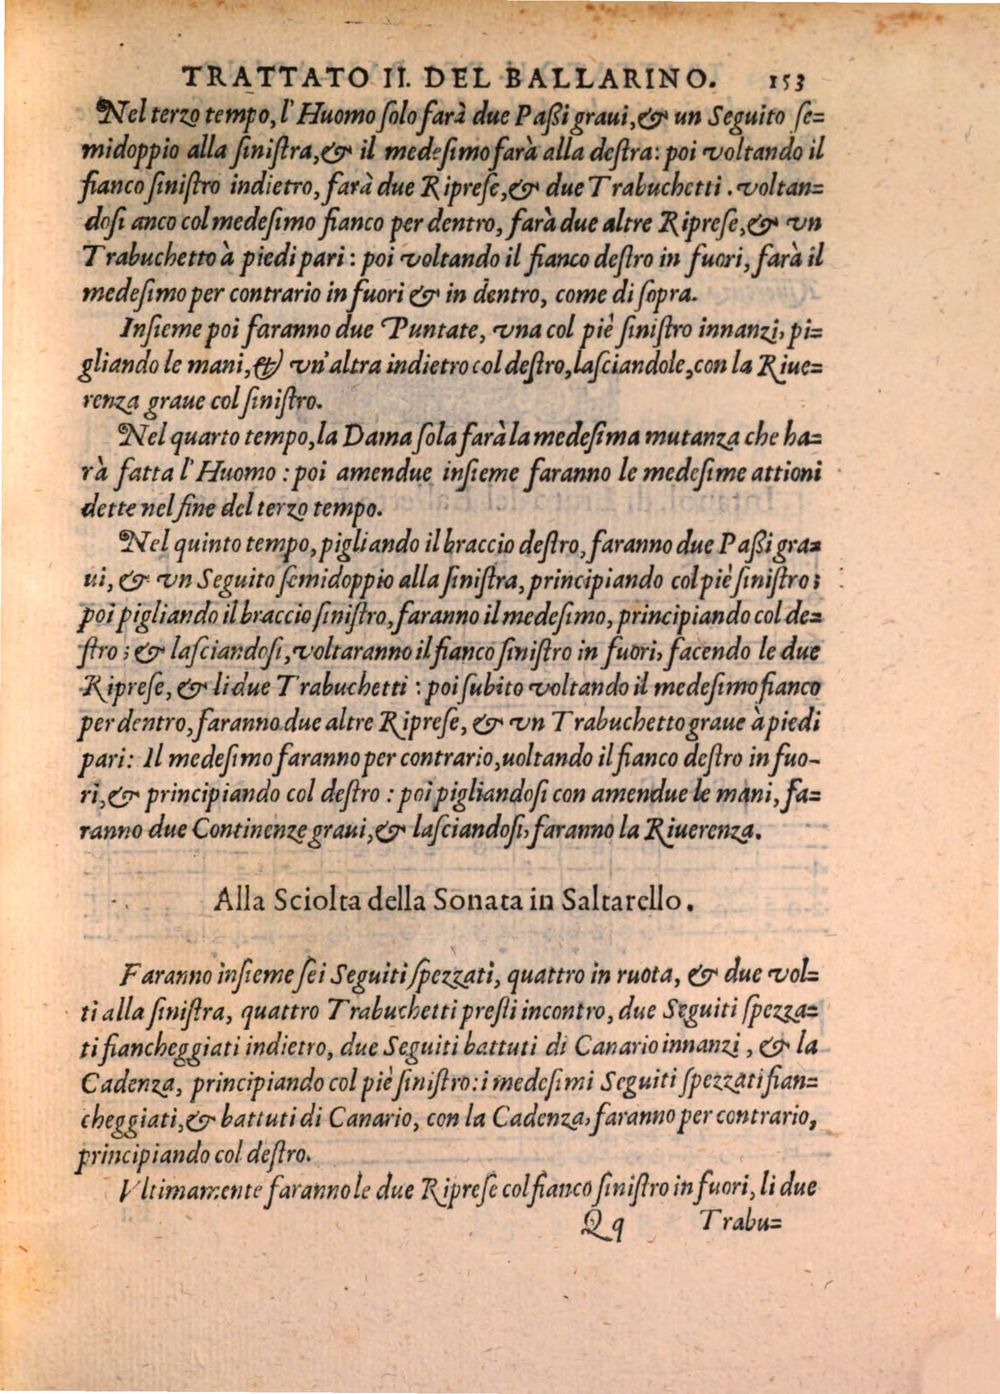 TRATTATO II. DEL BALLARINO. 153
Nel terzo tempo, l'Huomo ſolo farà due Paßi graui, & un Seguito ſe=
midoppio alla ſiniſtra, & il medeſimo farà alla deſtra: poi voltando il
fianco ſiniſtro indietro, farà due Ripreſe, & due Trabuchetti. voltan=
doſi anco col medeſimo fianco per dentro, farà due altre Ripreſe, & vn
Trabuchetto à piedi pari: poi voltando il fianco deſtro in fuori, farà il
medeſimo per contrario in fuori & in dentro, come di ſopra.
Inſieme poi faranno due Puntate, vna col piè ſiniſtro innanzi, pi=
gliando le mani, & vn'altra indietro col deſtro, laſciandole, con la Riue=
renza graue col ſiniſtro.
Nel quarto tempo, la Dama ſola farà la medeſima mutanza che ha=
rà fatta l'Huomo: poi amendue inſieme faranno le medeſime attioni
dette nel fine del terzo tempo.
Nel quinto tempo, pigliando il braccio deſtro, faranno due Paßi gra=
ui, & vn Seguito ſemidoppio alla ſiniſtra, principiando col piè ſiniſtro;
poi pigliando il braccio ſiniſtro, faranno il medeſimo, principiando col de=
ſtro; & laſciandoſi, voltaranno il fianco ſiniſtro in fuori, facendo le due
Ripreſe, & li due Trabuchetti: poi ſubito voltando il medeſimo fianco
per dentro, faranno due altre Ripreſe, & vn Trabuchetto graue à piedi
pari: Il medeſimo faranno per contrario, uoltando il fianco deſtro in fuo-
ri, & principiando col deſtro: poi pigliandoſi con amendue le mani, fa=
ranno due Continenze graui, & laſciandoſi, faranno la Riuerenza.
Alla Sciolta della Sonata in Saltarello.
Faranno inſieme ſei Seguiti ſpezzati, quattro in ruota, & due vol=
ti alla ſiniſtra, quattro Trabuchetti preſti incontro, due Seguiti ſpezza=
ti fiancheggiati indietro, due Seguiti battuti di Canario innanzi, & la
Cadenza, principiando col piè ſiniſtro: i medeſimi Seguiti ſpezzati fian=
cheggiati, & battuti di Canario, con la Cadenza, faranno per contrario,
principiando col deſtro.
Vltimamente faranno le due Ripreſe col fianco ſiniſtro in fuori, li due
Qq Trabu=